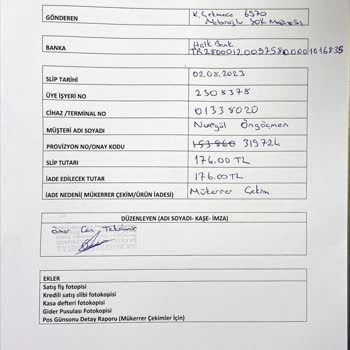 GÖNDEREN K.Çekmece 6970
BANKA Halk Bank
SLİP TARİHİ 02.08.2023
ÜYE İŞYERİ NO 2308378
CİHAZ /TERMINAL NO 01338020
MÜŞTERİ ADI SOYADI Nurgül Öngöçmen
PROVİZYON NO/ONAY KODU 153860 319724
SLİP TUTARI 176.00 TL
İADE EDİLECEK TUTAR 176.00 TL
İADE NEDENİ( MÜKERRER ÇEKİM/ÜRÜN İADESİ) Mükerrer Çekim
DÜZENLEYEN (ADI SOYADI- KAŞE- İMZA)
Ömer Can
EKLER
Satış fiş fotopisi
Kredili satış slibi fotokopisi
Kasa defteri fotokopisi
Gider Pusulası Fotokopisi
Pos Günsonu Detay Raporu (Mükerrer Çekimler İçin)